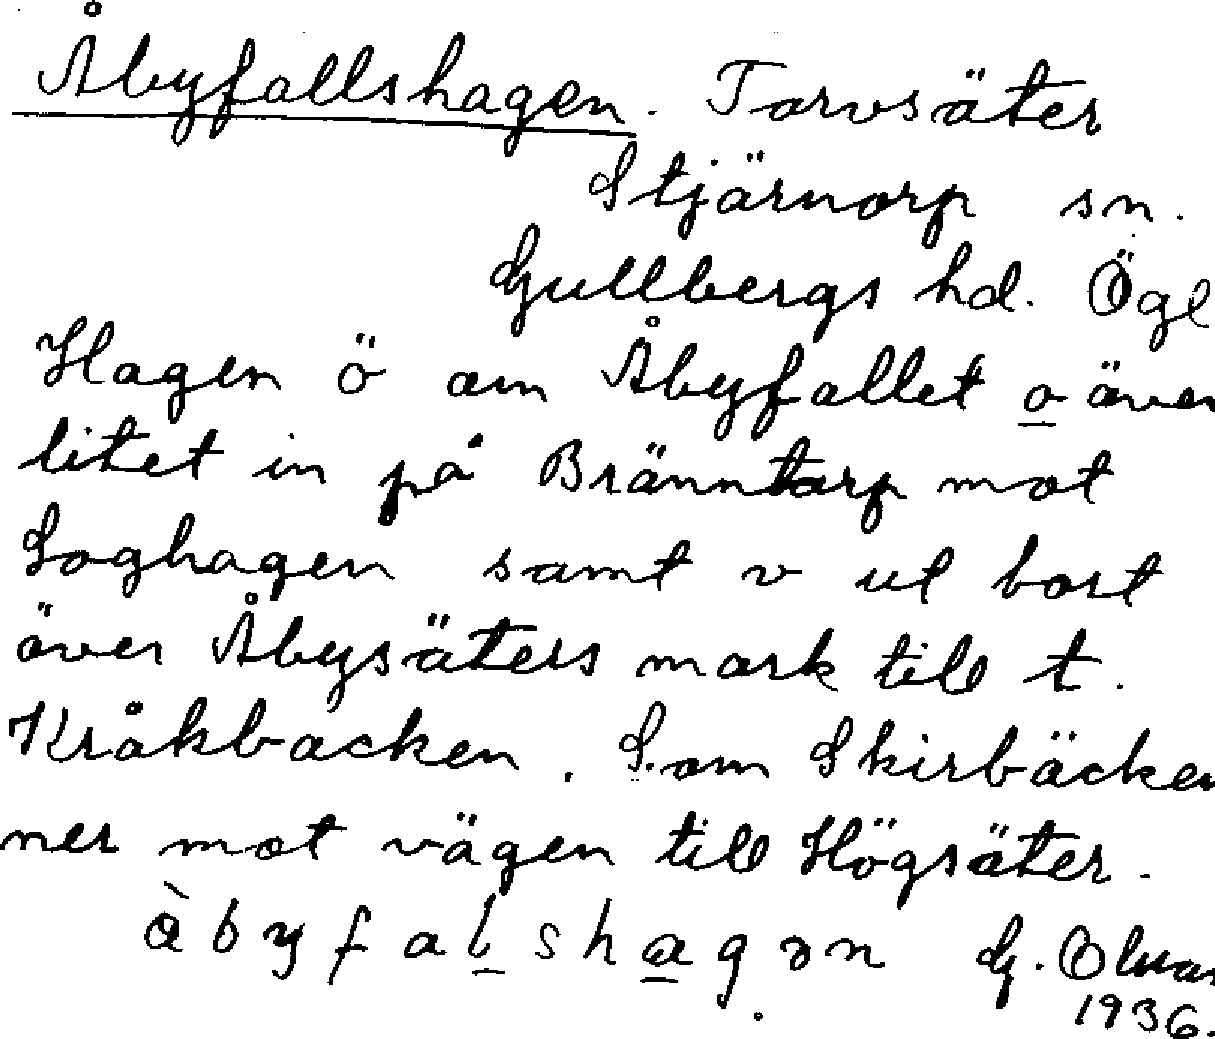 Åbyfallshagen. Torvsäter
Stjärnorp sn.
Gullbergs hd. Ögl
Hagen ö om Åbyfallet o över
litet in på Bränntorp mot
Loghagen samt v ut bort
över Åbysäters mark till t.
Kråkbacken. S. om Skirbäcken
ner mot vägen till Högsäter.
å̀byfalshagən G.
1936.